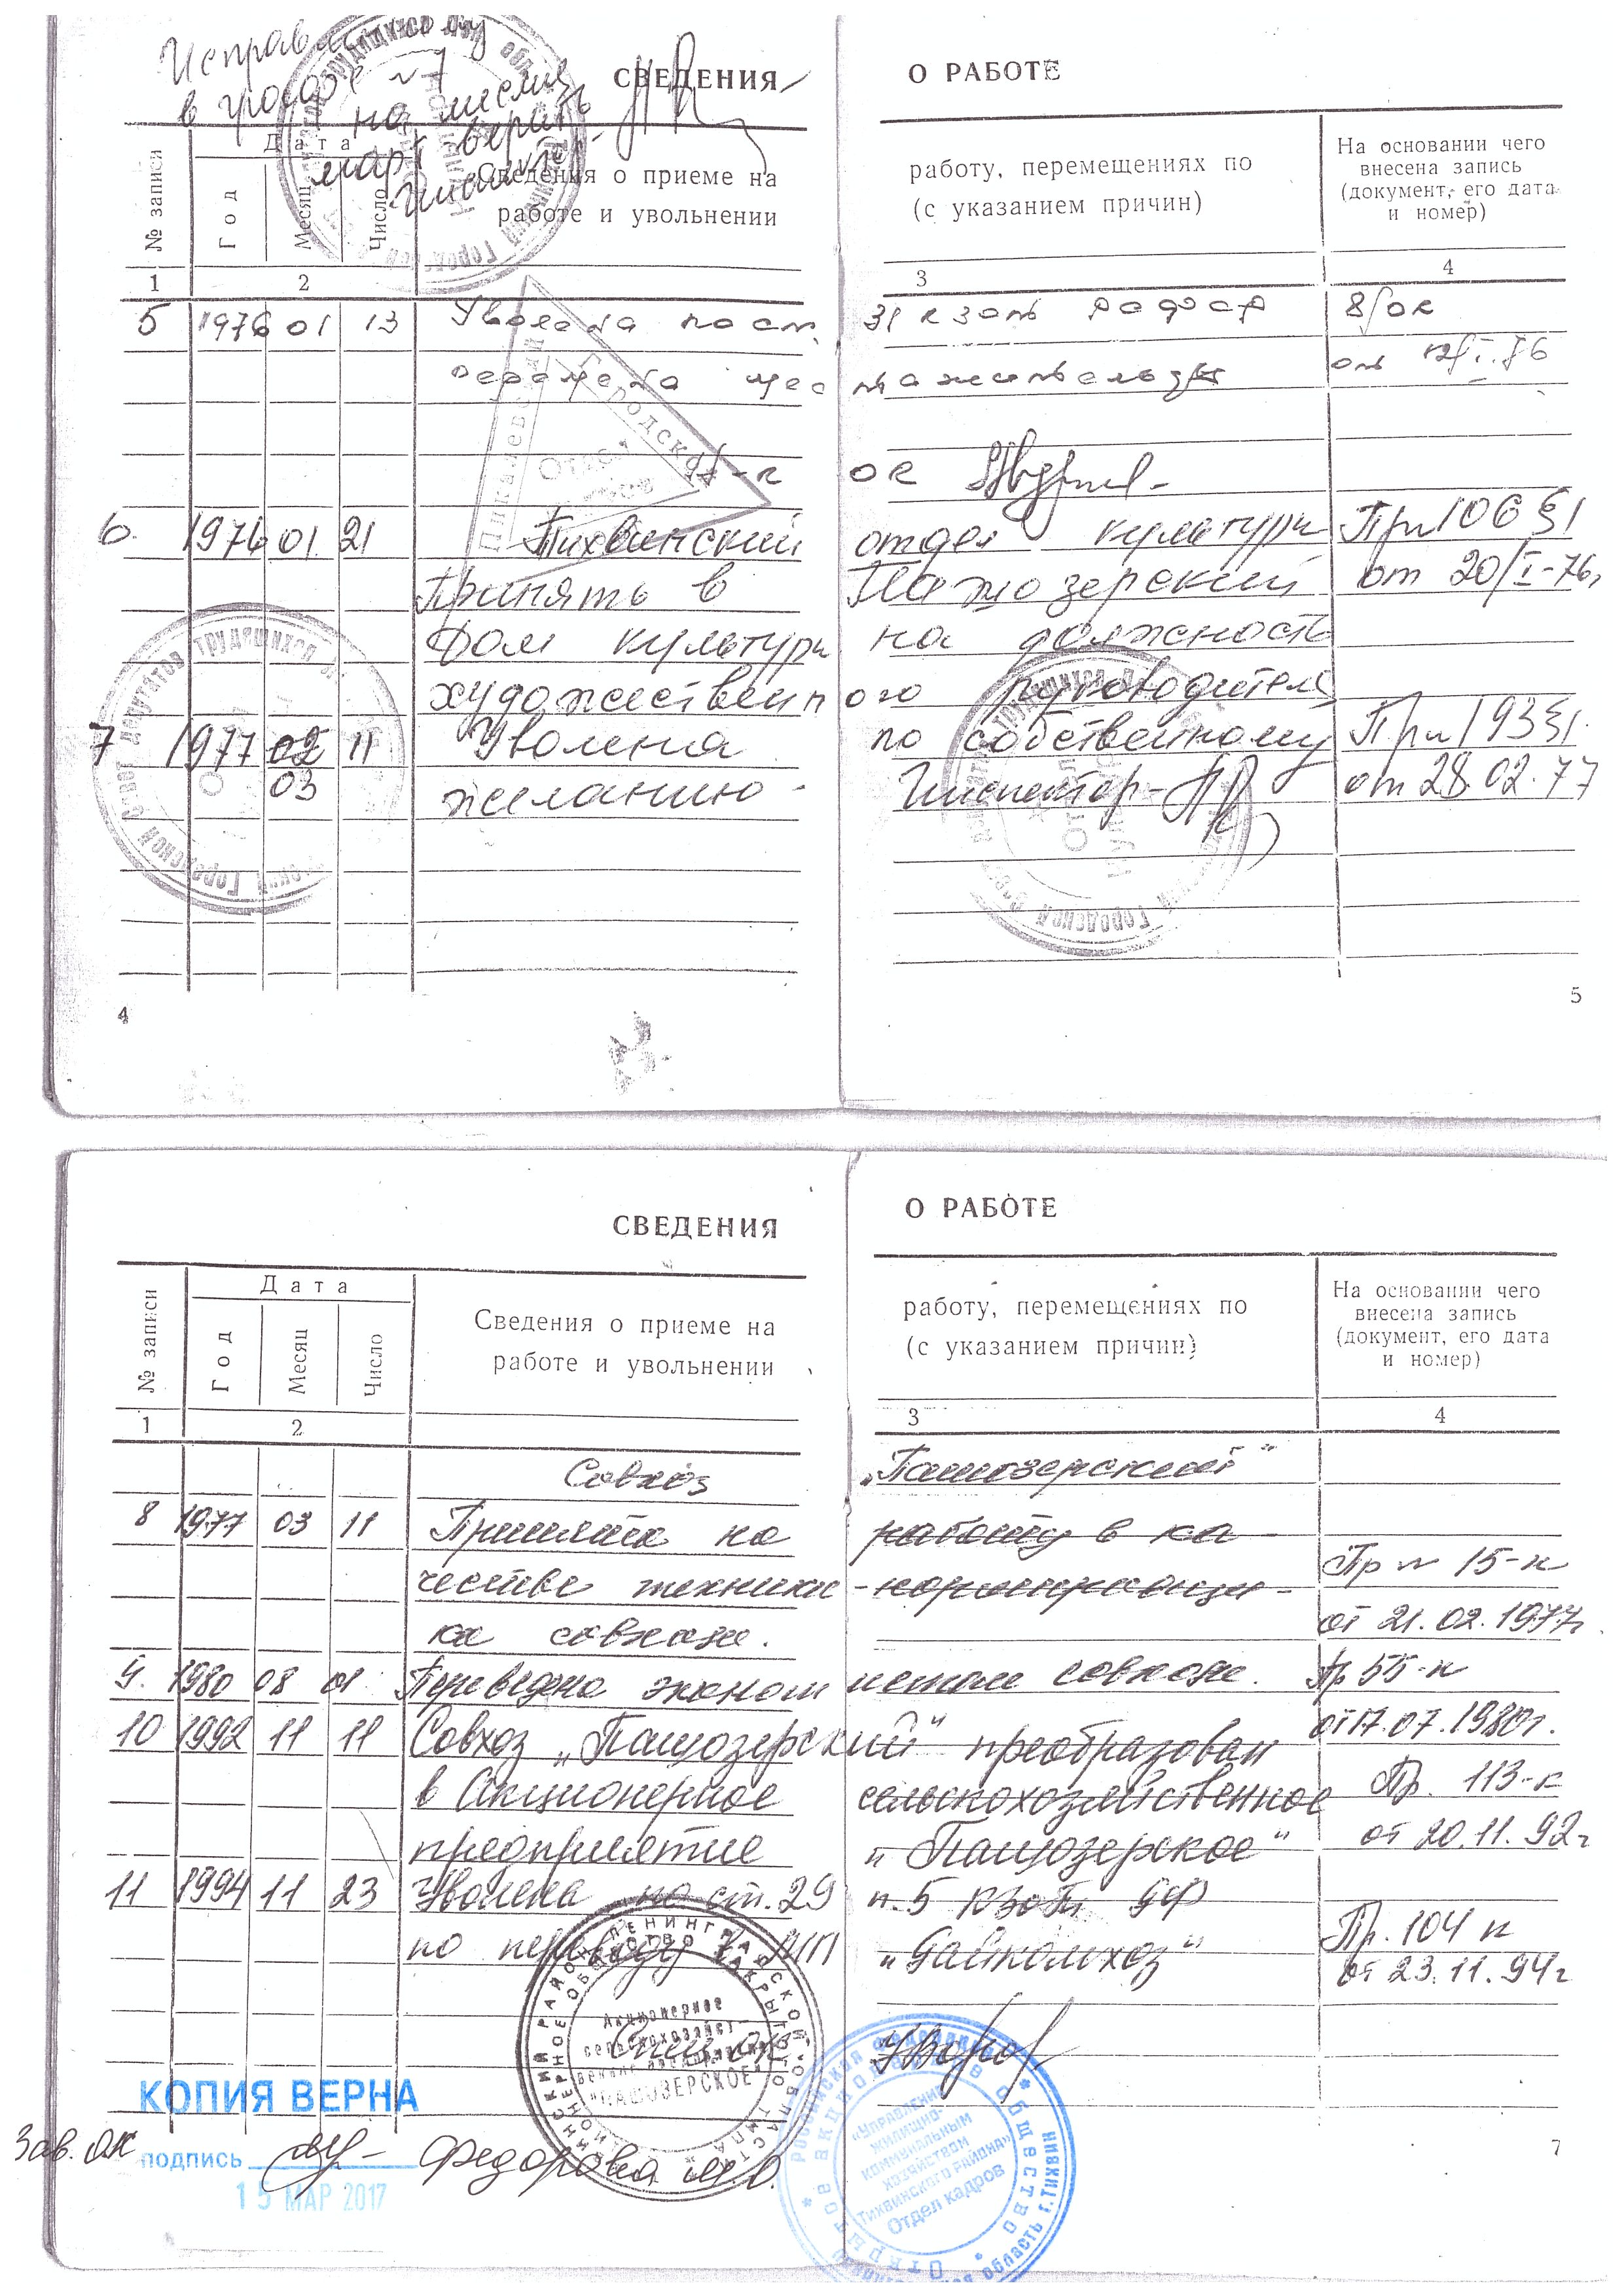 Исправленному
в графе №7
на месяц
март верить
Инспектор-
СВЕДЕНИЯ О РАБОТЕ
№ записи
Дата
Год
Месяц
Число
Сведения о приеме на работу, перемещениях по
работе и увольнении (с указанием причин)
На основании чего
внесена запись
(документ, его дата
и номер)
1 2 3 4
5 1976 01 13 Уволена по ст. 31 КЗоТ РСФСР 8/ок
перемена места жительства от 12/I.76
н-к ОК
Пикалевский Городской
Отдел
6. 1976 01 21 Тихвинский отдел культуры Пр № 106 §1
Принять в Пашозерский от 20/I-76г
Дом культуры на должность
художественного руководителя
7 1977 02 11 Уволена по собственному Пр № 193 §1.
03 желанию- Инспектор- от 28.02.77
4 5
СВЕДЕНИЯ О РАБОТЕ
№ записи
Дата
Год
Месяц
Число
Сведения о приеме на работу, перемещениях по
работе и увольнении (с указанием причин)
На основании чего
внесена запись
(документ, его дата
и номер)
1 2 3 4
Совхоз „Пашозерский“
8 1977 03 11 Принята на работу в ка-
честве техника-нормировщи- Пр № 15-к
ка совхоза. от 21.02.1977г.
9. 1980 08 01 Переведена экономистом совхоза. Пр 55-к
от 17.07.1980г.
10 1992 11 11 Совхоз „Пашозерский“ преобразован
в Акционерное сельскохозяйственное Пр. 113-к
предприятие „Пашозерское“ от 20.11.92г
11 1994 11 23 Уволена по ст. 29 п. 5 КЗоТ РФ
по переводу в „Райколхоз“ Пр. 104 к
от 23.11.94г
Акционерное
сельскохозяйст-
венное предприятие
"ПАШОЗЕРСКОЕ"
КОПИЯ ВЕРНА
Зав. ОК подпись Федорова М.О.
15 МАР 2017
«Управление
жилищно-
коммунальным
хозяйством
Тихвинского района»
Отдел кадров
7